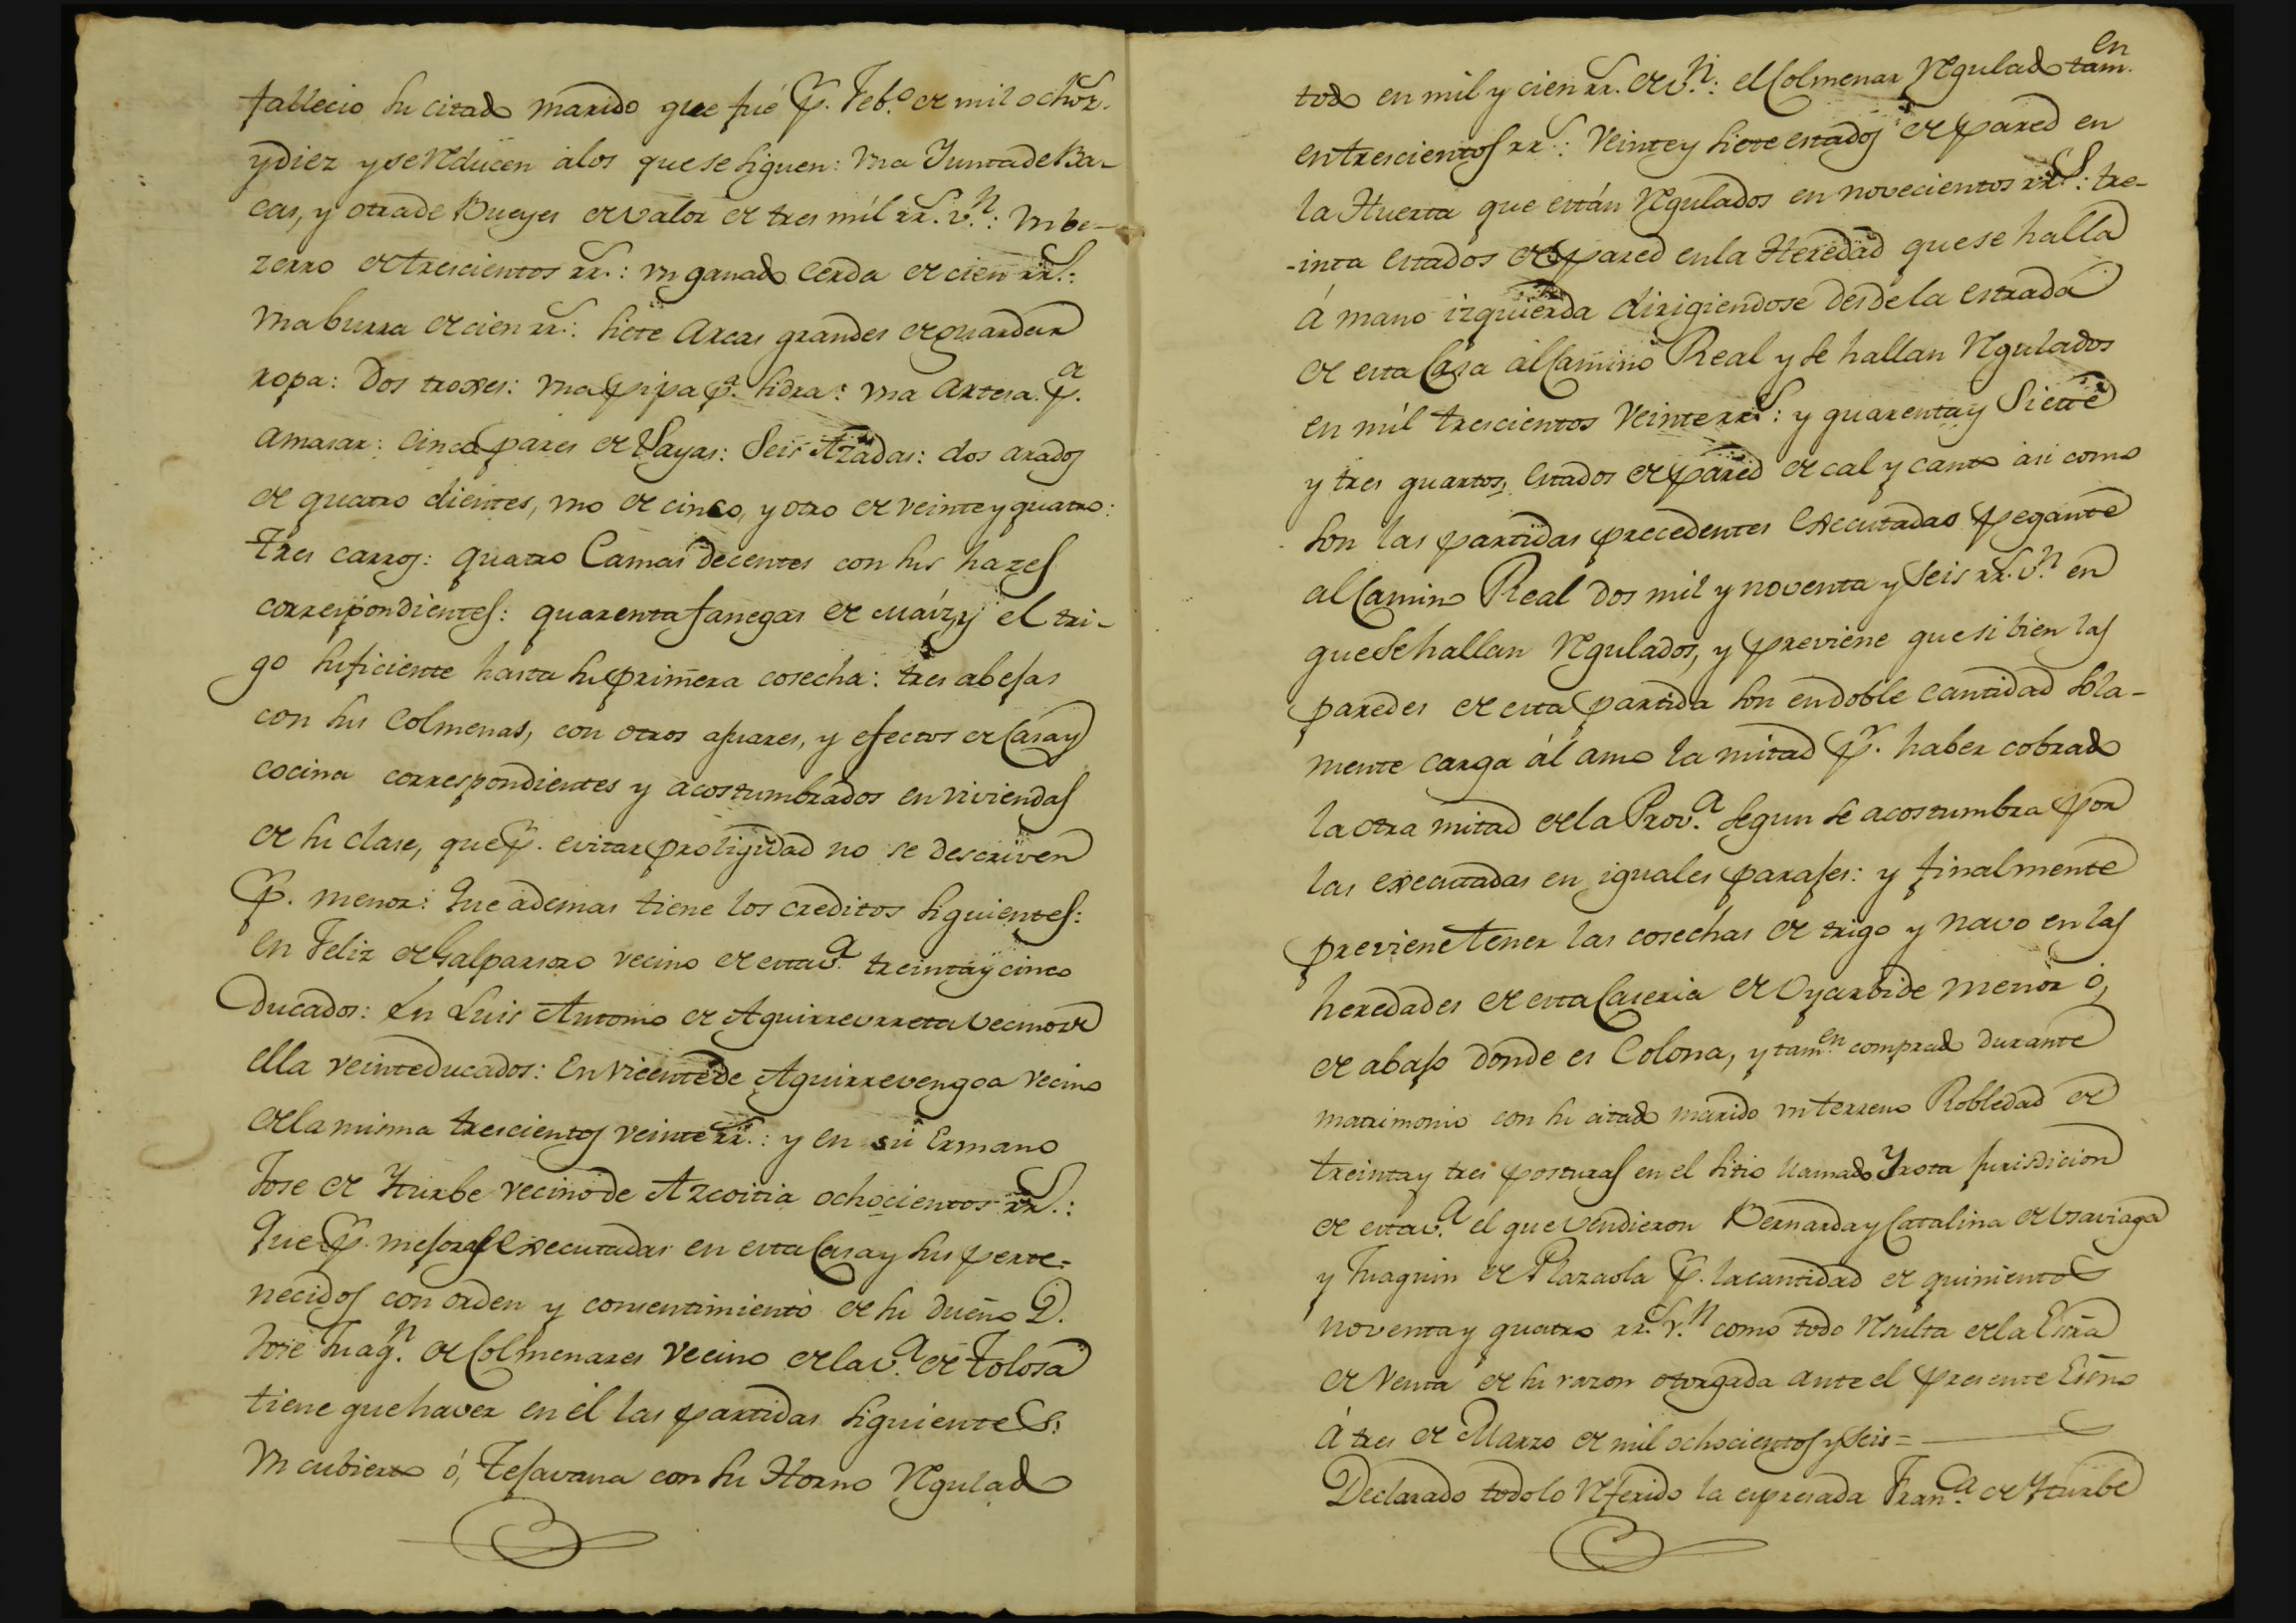 fallecio su citado marido que fué Pr. Feb.o de mil ochos.
y diez y se reducen a los que se siguen: Una Yunta de Ba-
cas, y otra de Bueyes de valor de tres mil rr.s v.n: Un be-
zerro de trescientos rr.s: un ganado cerda de cien rr.s:
Una burra de cien rr.s: siete Arcas grandes de guardar
ropa: Dos troxes: una pipa p.a sidra: una Artesa p.a
amasar: cinco pares de Layas: Seis Azadas: dos arados
de quatro dientes, uno de cinco, y otro de veinte y quatro:
tres carros: quatro Camas decentes con sus hazes
correspondientes: quarenta fanegas de maíz, y el tri-
go suficiente hasta su primera cosecha: tres abejas
con sus Colmenas, con otros ajuares, y efectos de Casa y
cocina correspondientes y acostumbrados en viviendas
de su clase, que p.r evitar proligidad no se descriven
P.r menor: Que ademas tiene los creditos siguientes:
en Feliz de Galparsoro vecino de esta v.a treinta y cinco
Ducados: En Luis Antonio de Aguirreurreta vecino de
ella veinte ducados: En Vicente de Aguirrevengoa vecino
de la misma trescientos veinte rr.s: y en su Ermano
Jose de Yturbe vecino de Azcoitia ochocientos rr.s:
Que p.r mejoras executadas en esta Casa y sus perte-
necidos con orden y consentimiento de su dueño D.
José Juaq.n de Colmenares vecino de la v.a de Tolosa
tiene que haver en él las partidas siguientes:
Un cubierto ó, Tejavana con su Horno regulado
todo en mil y cien rr.s de v.n: el Colmenar regulado tam.en
en trescientos rr.s: Veinte y siete estados de pared en
la Huerta que están regulados en novecientos rr.s: tre-
inta estados de pared en la Heredad que se halla
á mano izquierda dirigiendose desde la estrada
de esta Casa al Camino Real y se hallan regulados
en mil trescientos veinte rr.s: y quarenta y Siete
y tres quartos, estados de pared de cal y canto asi como
son las partidas precedentes executadas pegante
al Camino Real dos mil y noventa y seis rr.s v.n en
que se hallan regulados, y previene que si bien las
paredes de esta partida son en doble cantidad sola-
mente carga ál amo la mitad P.r haber cobrado
la otra mitad de la Prov.a segun se acostumbra por
las executadas en iguales parajes: y finalmente
previene tener las cosechas de trigo y navo en las
heredades de esta Caseria de Oyarbide menor ó,
de abajo donde es Colona, y tam.en comprado durante
matrimonio con su citado marido un terreno Robledad de
treinta y tres posturas en el sitio llamado Yrota jurisdicion
de esta v.a el que vendieron Bernarda y Catalina de Usaviaga
y Juaquin de Plazaola P.r la cantidad de quinientos
noventa y quatro rr.s v.n como todo resulta de la Esñra
de Venta de su razon otorgada ante el presente Esño
á tres de Marzo de mil ochocientos y seis =
Declarado todo lo referido la expresada Fran.ca de Yturbe